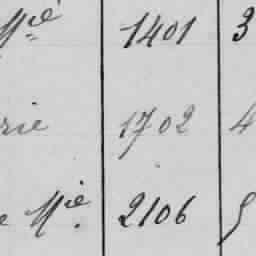 Mié 1401 3
rie 1702 4
e Mie. 2106 5